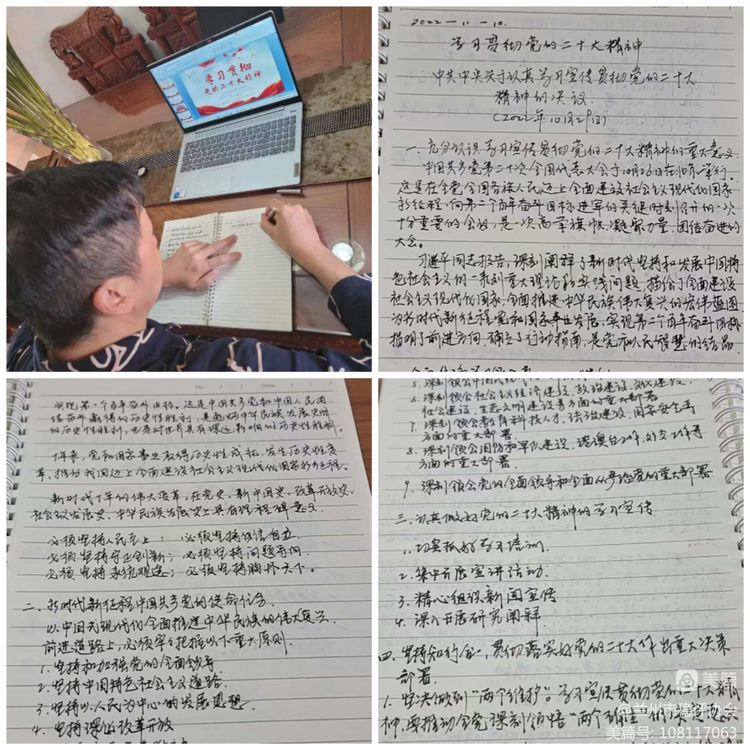 学习贯彻
党的二十大精神
2022.11.10.
学习贯彻党的二十大精神
中共中央关于认真学习宣传贯彻党的二十大
精神的决议
(2022年10月29日)
一、充分认识学习宣传贯彻党的二十大精神的重大意义
中国共产党第二十次全国代表大会于10月16日在北京举行。
这是在全党全国各族人民迈上全面建设社会主义现代化国家
新征程、向第二个百年奋斗目标进军的关键时刻召开的一次
十分重要的会议,是一次高举旗帜、凝聚力量、团结奋进的
大会。
习近平同志报告,深刻阐释了新时代坚持和发展中国特
色社会主义的一系列重大理论和实践问题,描绘了全面建设
社会主义现代化国家、全面推进中华民族伟大复兴的宏伟蓝图
为新时代新征程党和国家事业发展、实现第二个百年奋斗目标
指明了前进方向、确立了行动指南,是党和人民智慧的结晶
实现第一个百年奋斗目标。这是中国共产党和中国人民团
结奋斗赢得的历史性胜利,是彪炳中华民族发展史册
的历史性胜利,也是对世界具有深远影响的历史性胜利。
十年来,党和国家事业取得历史性成就、发生历史性变
革,推动我国迈上全面建设社会主义现代化国家新征程。
新时代十年的伟大变革,在党史、新中国史、改革开放史、
社会主义发展史、中华民族发展史上具有里程碑意义。
必须坚持人民至上; 必须坚持自信自立.
必须坚持守正创新; 必须坚持问题导向.
必须坚持系统观念; 必须坚持胸怀天下。
二、新时代新征程中国共产党的使命任务
以中国式现代化全面推进中华民族的伟大复兴.
前进道路上,必须牢牢把握以下重大原则.
1. 坚持和加强党的全面领导
2. 坚持中国特色社会主义道路
3. 坚持以人民为中心的发展思想
4. 坚持深化改革开放
5. 深刻领会
6. 深刻领会社会主义经济建设、政治建设、文化建设、
社会建设、生态文明建设等方面的重大部署
7. 深刻领会教育科技人才、法治建设、国家安全等
方面的重大部署
8. 深刻领会国防和军队建设、港澳台工作、外交工作等
方面的重大部署
9. 深刻领会党的全面领导和全面从严治党的重大部署
三、认真做好党的二十大精神的学习宣传
1. 切实抓好学习培训.
2. 集中开展宣讲活动.
3. 精心组织新闻宣传
4. 深入开展研究阐释
四、坚持知行合一,贯彻落实好党的二十大作出重大决策
部署.
1. 坚决做到"两个维护"。学习宣传贯彻党的二十大精
神,要推动全党深刻领悟"两个确立"的决定性意义
美篇
@兰州市豫评协会
美篇号: 108117063